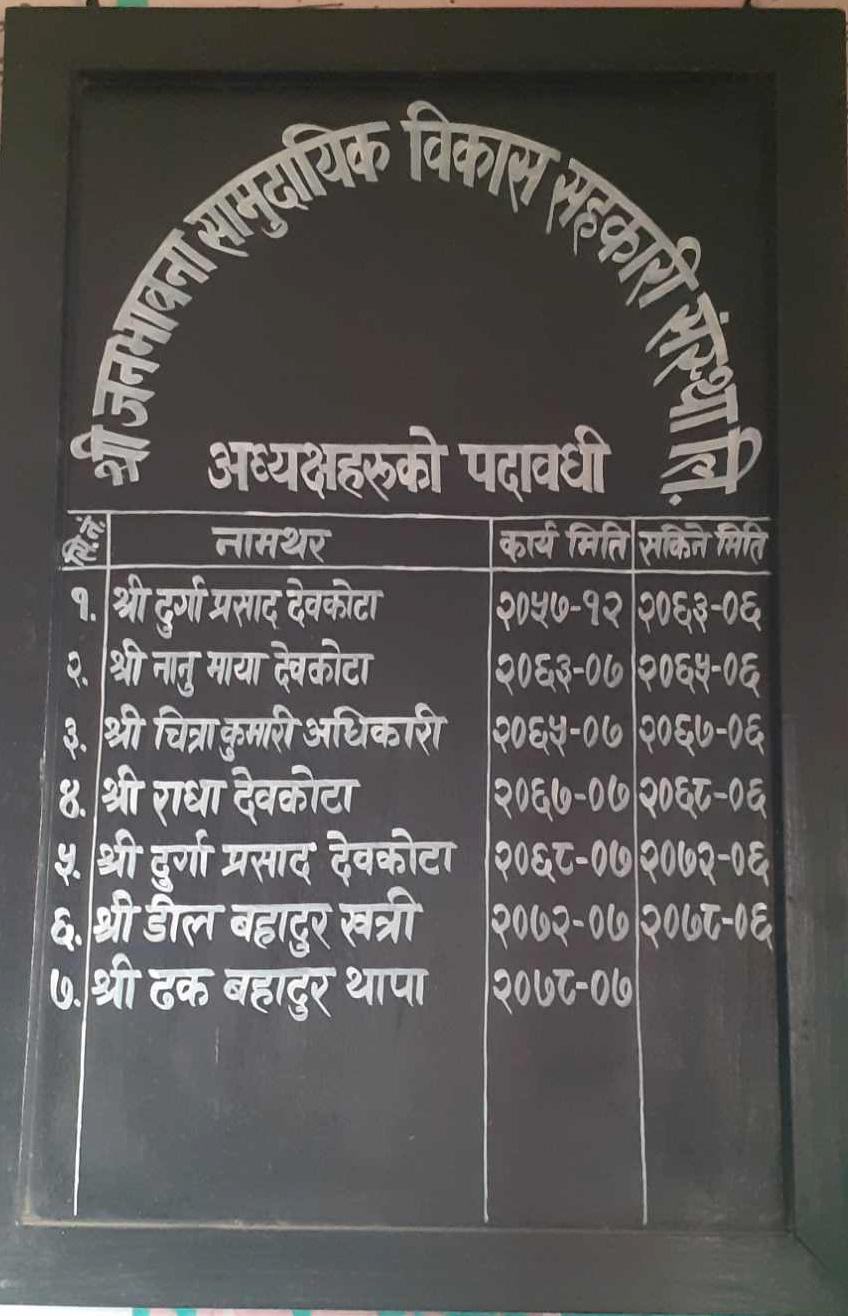 श्री जनभावना सामुदायिक विकास सहकारी संस्था लि.
अध्यक्षहरूको पदावधी
सि.नं. नामथर कार्य मिति सकिने मिति
१. श्री दुर्गा प्रसाद देवकोटा २०५७-१२ २०६३-०६
२. श्री नानु माया देवकोटा २०६३-०७ २०६५-०६
३. श्री चित्रा कुमारी अधिकारी २०६५-०७ २०६७-०६
४. श्री राधा देवकोटा २०६७-०७ २०६८-०६
५. श्री दुर्गा प्रसाद देवकोटा २०६८-०७ २०७२-०६
६. श्री डील बहादुर खत्री २०७२-०७ २०७८-०६
७. श्री ढक बहादुर थापा २०७८-०७